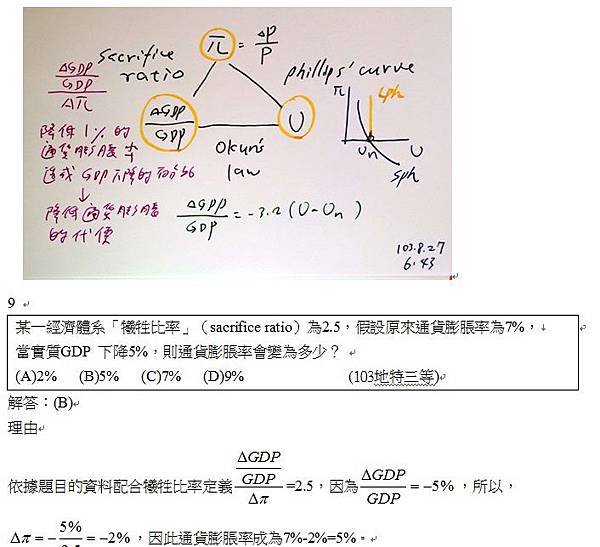 sacrifice
ratio
π = ΔP/P
phillips' curve
ΔGDP/GDP
Δπ
降低1%的
通貨膨脹率
造成GDP下降的百分比
↓
降低通貨膨脹
的代價
ΔGDP/GDP
U
Okun's
law
π
Lph
Un
U
sph
ΔGDP/GDP = -3.2 (U-Un)
103.8.27
6:43
9
某一經濟體系「犧牲比率」（sacrifice ratio）為2.5，假設原來通貨膨脹率為7%，
當實質GDP 下降5%，則通貨膨脹率會變為多少？
(A)2% (B)5% (C)7% (D)9% (103地特三等)
解答：(B)
理由
依據題目的資料配合犧牲比率定義 ΔGDP/GDP/Δπ =2.5，因為 ΔGDP/GDP = -5%，所以，
Δπ = - 5%/2.5 = -2%，因此通貨膨脹率成為7%-2%=5%。